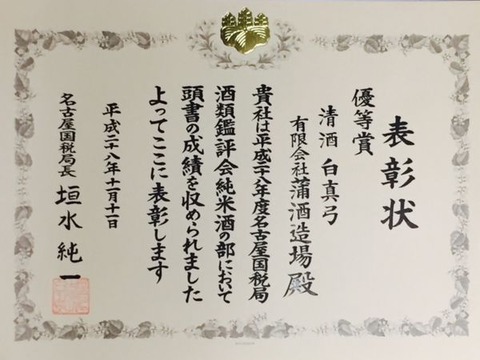 表彰状
優等賞
清酒 白真弓
有限会社蒲酒造場 殿
貴社は平成二十八年度名古屋国税局
酒類鑑評会純米酒の部において
頭書の成績を収められました
よってここに表彰します
平成二十八年十一月十一日
名古屋国税局長 垣水純一